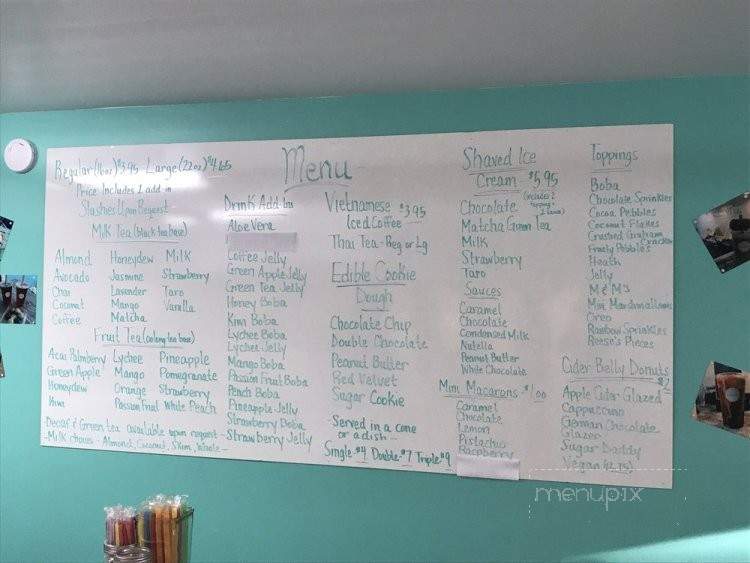 Menu
Regular (16oz) $3.95 Large (22oz) $4.65
Price Includes 1 add in
Slushes Upon Request
Milk Tea (black tea base)
Almond Honeydew Milk
Avocado Jasmine Strawberry
Chai Lavender Taro
Coconut Mango Vanilla
Coffee Matcha
Fruit Tea (oolong tea base)
Acai Palmberry Lychee Pineapple
Green Apple Mango Pomegranate
Honeydew Orange Strawberry
Kiwi Passion Fruit White Peach
-Decaf & Green tea available upon request-
-Milk choices - Almond, Coconut, Skim, Whole-
Drink Add Ins
Aloe Vera
Coffee Jelly
Green Apple Jelly
Green Tea Jelly
Honey Boba
Kiwi Boba
Lychee Boba
Lychee Jelly
Mango Boba
Passion Fruit Boba
Peach Boba
Pineapple Jelly
Strawberry Boba
Strawberry Jelly
Vietnamese $3.95
Iced Coffee
Thai Tea - Reg or Lg
Edible Cookie
Dough
Chocolate Chip
Double Chocolate
Peanut Butter
Red Velvet
Sugar Cookie
-Served in a cone
or a dish-
Single-$4 Double-$7 Triple $9
Shaved Ice
Cream $5.95
(includes 2
toppings
1 sauce)
Chocolate
Matcha Green Tea
Milk
Strawberry
Taro
Sauces
Caramel
Chocolate
Condensed Milk
Nutella
Peanut Butter
White Chocolate
Mini Macarons $1.00
Caramel
Chocolate
Lemon
Pistachio
Raspberry
Toppings
Boba
Chocolate Sprinkles
Cocoa Pebbles
Coconut Flakes
Crushed Graham
Cracker
Fruity Pebbles
Heath
Jelly
M & M's
Mini Marshmallows
Oreo
Rainbow Sprinkles
Reese's Pieces
Cider Belly Donuts
$2
Apple Cider Glazed
Cappuccino
German Chocolate
Glazer
Sugar Daddy
Vegan
menupix